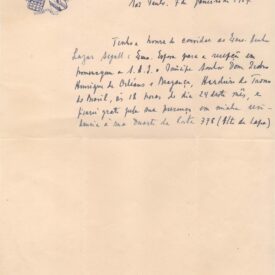 São Paulo, 7 de janeiro de 1957
Tenho a honra de convidar ao Exmo. Senhor
Lazar Segall e Exma. Esposa para a recepção em
homenagem a S.A.I. o Príncipe Senhor Dom Pedro
Henrique de Orléans e Bragança, Herdeiro do Trono
do Brasil, às 18 horas do dia 24 deste mês, e
ficarei grato pela sua presença em minha resi-
dência à rua Duarte da Costa 778 (Alto da Lapa)